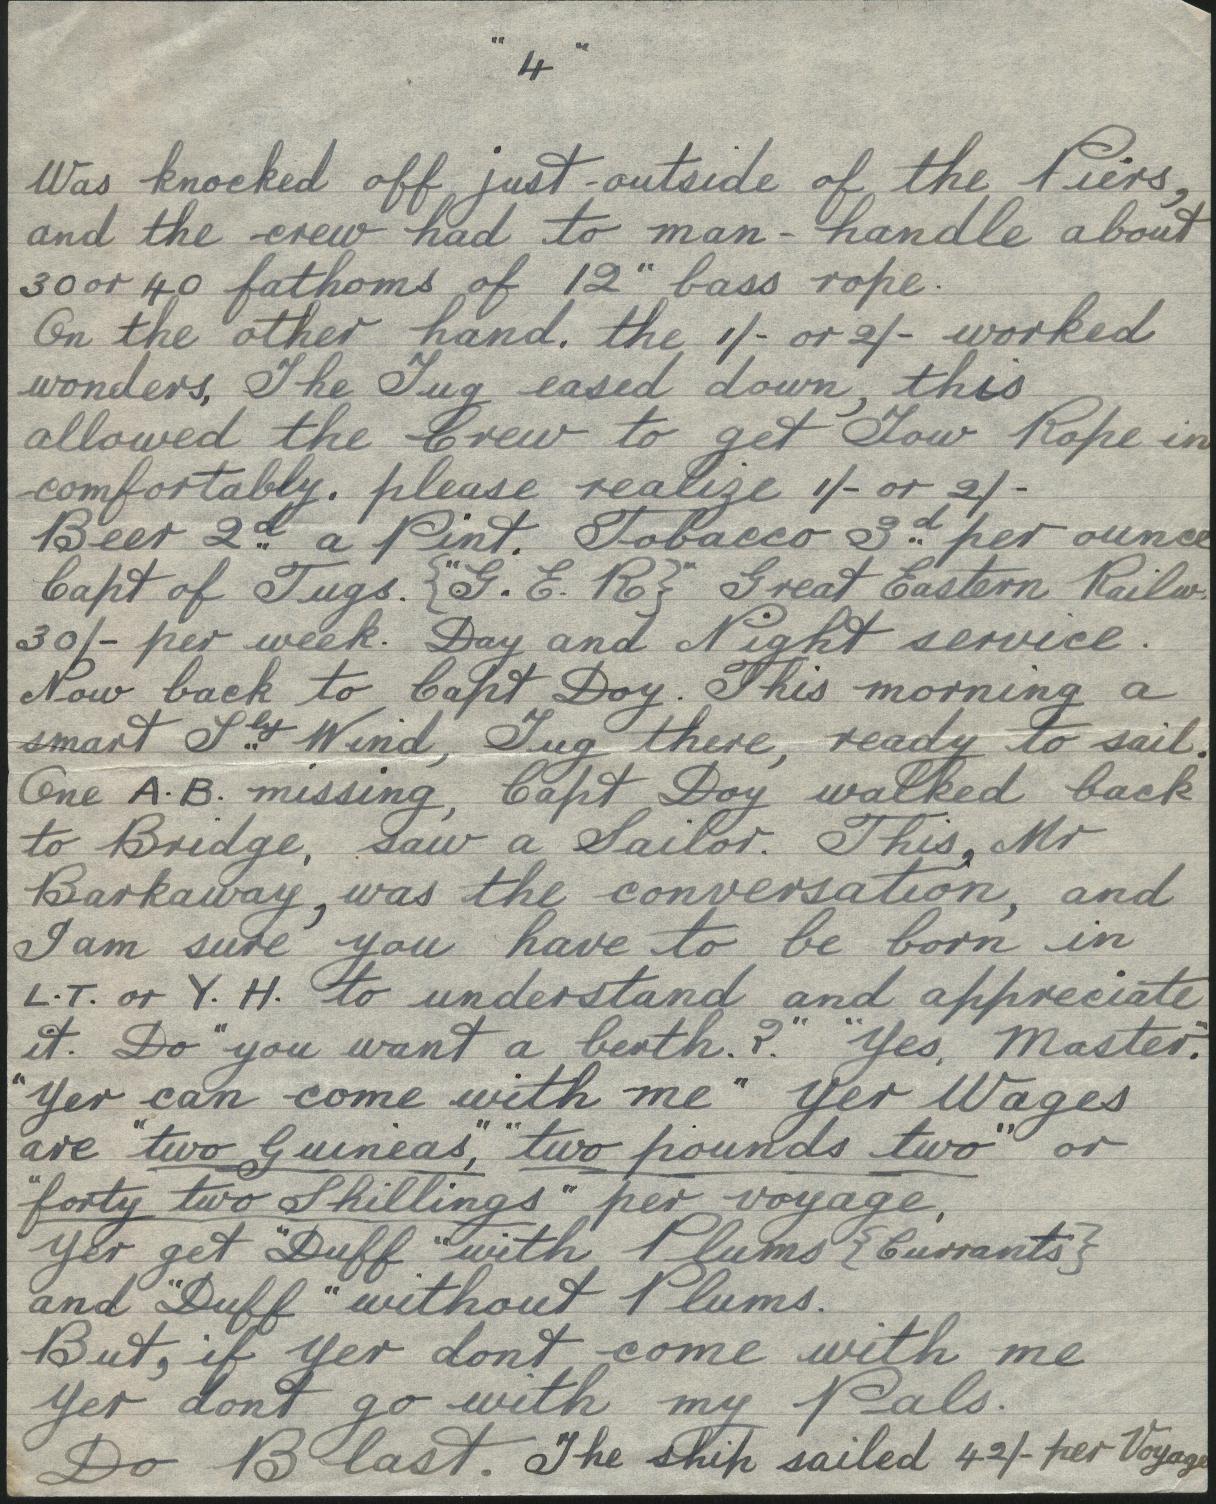 "4"
Was knocked off just-outside of the Piers,
and the crew had to man-handle about
30 or 40 fathoms of 12" bass rope.
On the other hand. the 1/- or 2/- worked
wonders, The Tug eased down, this
allowed the Crew to get Tow Rope in
comfortably. please realize 1/- or 2/-
Beer 2d a Pint. Tobacco 3d per ounce
Capt of Tugs. {"G. E. R}" Great Eastern Railw.
30/- per week. Day and Night service.
Now back to Capt Doy. This morning a
smart Sly Wind, Tug there, ready to sail.
One A.B. missing, Capt Doy walked back
to Bridge, saw a Sailor. This, Mr
Barkaway, was the conversation, and
I am sure you have to be born in
L.T. or Y. H. to understand and appreciate
it. Do "you want a berth.?." "Yes, Master."
"Yer can come with me" Yer Wages
are "two Guineas," "two pounds two" or
"forty two Shillings" per voyage,
Yer get "Duff" with Plums {Currants}
and "Duff" without Plums.
But, if Yer dont come with me
Yer dont go with my Pals.
Do B last. The ship sailed 42/- per Voyage